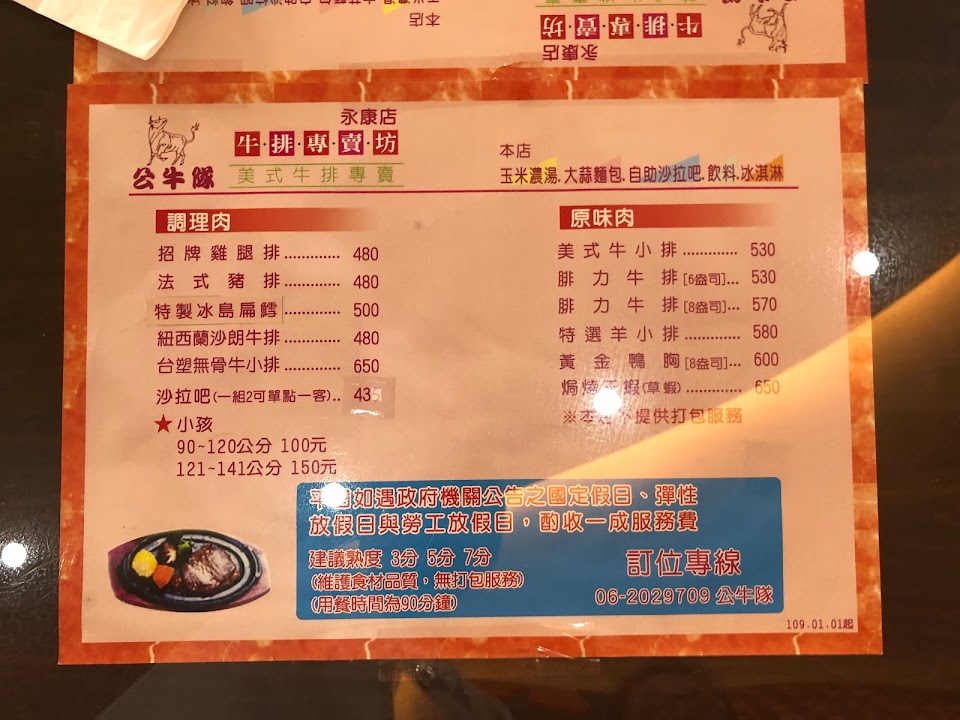 本店
永康店
牛·排·專·賣·坊
永康店
牛·排·專·賣·坊
公牛隊
美式牛排專賣
本店
玉米濃湯.大蒜麵包.自助沙拉吧.飲料.冰淇淋
調理肉
招牌雞腿排............. 480
法式豬排............. 480
特製冰島扁鱈............. 500
紐西蘭沙朗牛排............. 480
台塑無骨牛小排............. 650
沙拉吧(一組2可單點一客).. 43
★小孩
90~120公分 100元
121~141公分 150元
原味肉
美式牛小排............. 530
腓力牛排[6盎司]... 530
腓力牛排[8盎司]... 570
特選羊小排............. 580
黃金鴨胸[8盎司]... 600
焗燒 蝦(草蝦)............. 650
※本 不提供打包服務
平日如遇政府機關公告之國定假日、彈性
放假日與勞工放假日，酌收一成服務費
建議熟度 3分 5分 7分
(維護食材品質，無打包服務)
(用餐時間為90分鐘)
訂位專線
06-2029709 公牛隊
109.01.01起